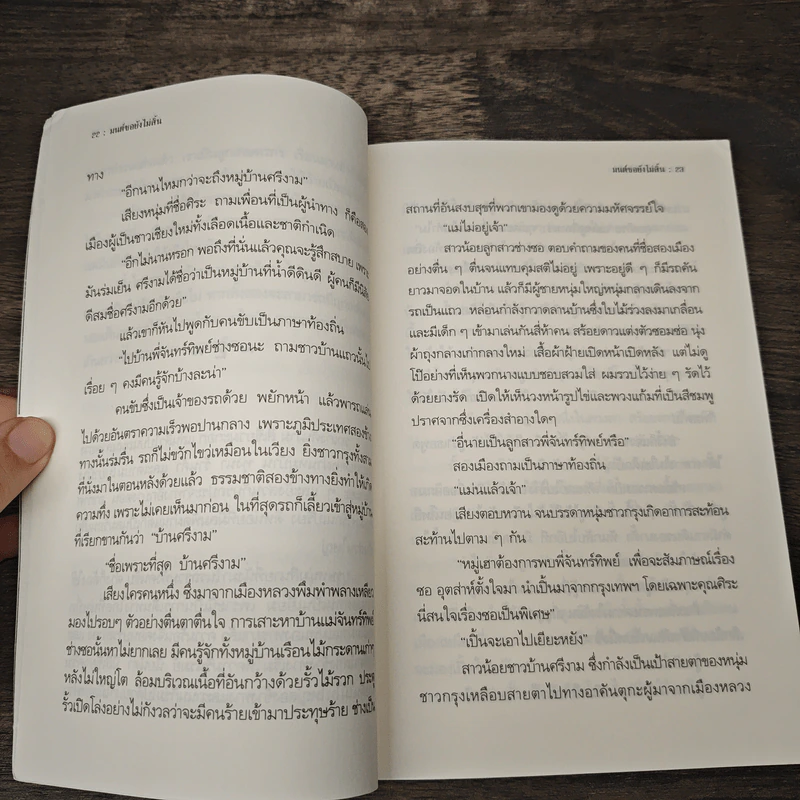 22 : มนต์ซอยังไม่สิ้น
ทาง
"อีกนานไหมกว่าจะถึงหมู่บ้านศรีงาม"
เสียงหนุ่มที่ชื่อศิระ ถามเพื่อนที่เป็นผู้นำทาง
เมืองผู้เป็นชาวเชียงใหม่ทั้งเลือดเนื้อและชาติกำเนิด
"อีกไม่นานหรอก พอถึงที่นั่นแล้วคุณจะรู้สึกสบาย เพราะ
มันร่มเย็น ศรีงามได้ชื่อว่าเป็นหมู่บ้านที่น้ำดีดินดี ผู้คนก็มี
ดีสมชื่อศรีงามอีกด้วย"
แล้วเขาก็หันไปพูดกับคนขับเป็นภาษาท้องถิ่น
"ไปบ้านพี่จันทร์ทิพย์ช่างซอนะ ถามชาวบ้านแถวนั้น
เรื่อย ๆ คงมีคนรู้จักบ้างละน่า"
คนขับซึ่งเป็นเจ้าของรถด้วย พยักหน้า แล้วพารถแล่น
ไปด้วยอันตราความเร็วพอปานกลาง เพราะภูมิประเทศสองข้าง
ทางนั้นร่มรื่น รถก็ไม่ขวักไขว่เหมือนในเวียง ยิ่งชาวกรุงทั้ง
ที่นั่งมาในตอนหลังด้วยแล้ว ธรรมชาติสองข้างทางยิ่งทำให้เกิด
ความทึ่ง เพราะไม่เคยเห็นมาก่อน ในที่สุดรถก็เลี้ยวเข้าสู่หมู่บ้าน
ที่เรียกขานกันว่า "บ้านศรีงาม"
"ชื่อเพราะที่สุด บ้านศรีงาม"
เสียงใครคนหนึ่ง ซึ่งมาจากเมืองหลวงพึมพำพลางเหลียว
มองไปรอบๆ ตัวอย่างตื่นตาตื่นใจ การเสาะหาบ้านแม่จันทร์ทิพย์
ช่างซอนั้นหาไม่ยากเลย มีคนรู้จักทั้งหมู่บ้านเรือนไม้กระดานเก่าๆ
หลังไม่ใหญ่โต ล้อมบริเวณเนื้อที่อันกว้างด้วยรั้วไม้รวก ประตู
รั้วเปิดโล่งอย่างไม่กังวลว่าจะมีคนร้ายเข้ามาประทุษร้าย ช่างเป็น
มนต์ซอยังไม่สิ้น : 23
สถานที่อันสงบสุขที่พวกเขามองดูด้วยความมหัศจรรย์ใจ
"แม่ไม่อยู่เจ้า"
สาวน้อยลูกสาวช่างซอ ตอบคำถามของคนที่ชื่อสองเมือง
อย่างตื่น ๆ ตื่นจนแทบคุมสติไม่อยู่ เพราะอยู่ดี ๆ ก็มีรถคัน
ยาวมาจอดในบ้าน แล้วก็มีผู้ชายหนุ่มใหญ่หนุ่มกลางเดินลงจาก
รถเป็นแถว หล่อนกำลังกวาดลานบ้านซึ่งใบไม้ร่วงลงมาเกลื่อน
และมีเด็ก ๆ เข้ามาเล่นกันสี่ห้าคน สร้อยดาวแต่งตัวซอมซ่อ นุ่ง
ผ้าถุงกลางเก่ากลางใหม่ เสื้อผ้าฝ้ายเปิดหน้าเปิดหลัง แต่ไม่ดู
โป๊อย่างที่เห็นพวกนางแบบชอบสวมใส่ ผมรวบไว้ง่าย ๆ รัดไว้
ด้วยยางรัด เปิดให้เห็นวงหน้ารูปไข่และพวงแก้มที่เป็นสีชมพู
ปราศจากซึ่งเครื่องสำอางใดๆ
"อี่นายเป็นลูกสาวพี่จันทร์ทิพย์หรือ"
สองเมืองถามเป็นภาษาท้องถิ่น
"แม่นแล้วเจ้า"
เสียงตอบหวาน จนบรรดาหนุ่มชาวกรุงเกิดอาการสะท้อน
สะท้านไปตาม ๆ กัน
"หมู่เฮาต้องการพบพี่จันทร์ทิพย์ เพื่อจะสัมภาษณ์เรื่อง
ซอ อุตส่าห์ตั้งใจมา นำเปิ้นมาจากกรุงเทพฯ โดยเฉพาะคุณศิระ
นี่สนใจเรื่องซอเป็นพิเศษ"
"เปิ้นจะเอาไปเยียะหยัง"
สาวน้อยชาวบ้านศรีงาม ซึ่งกำลังเป็นเป้าสายตาของหนุ่ม
ชาวกรุงเหลือบสายตาไปทางอาคันตุกะผู้มาจากเมืองหลวง